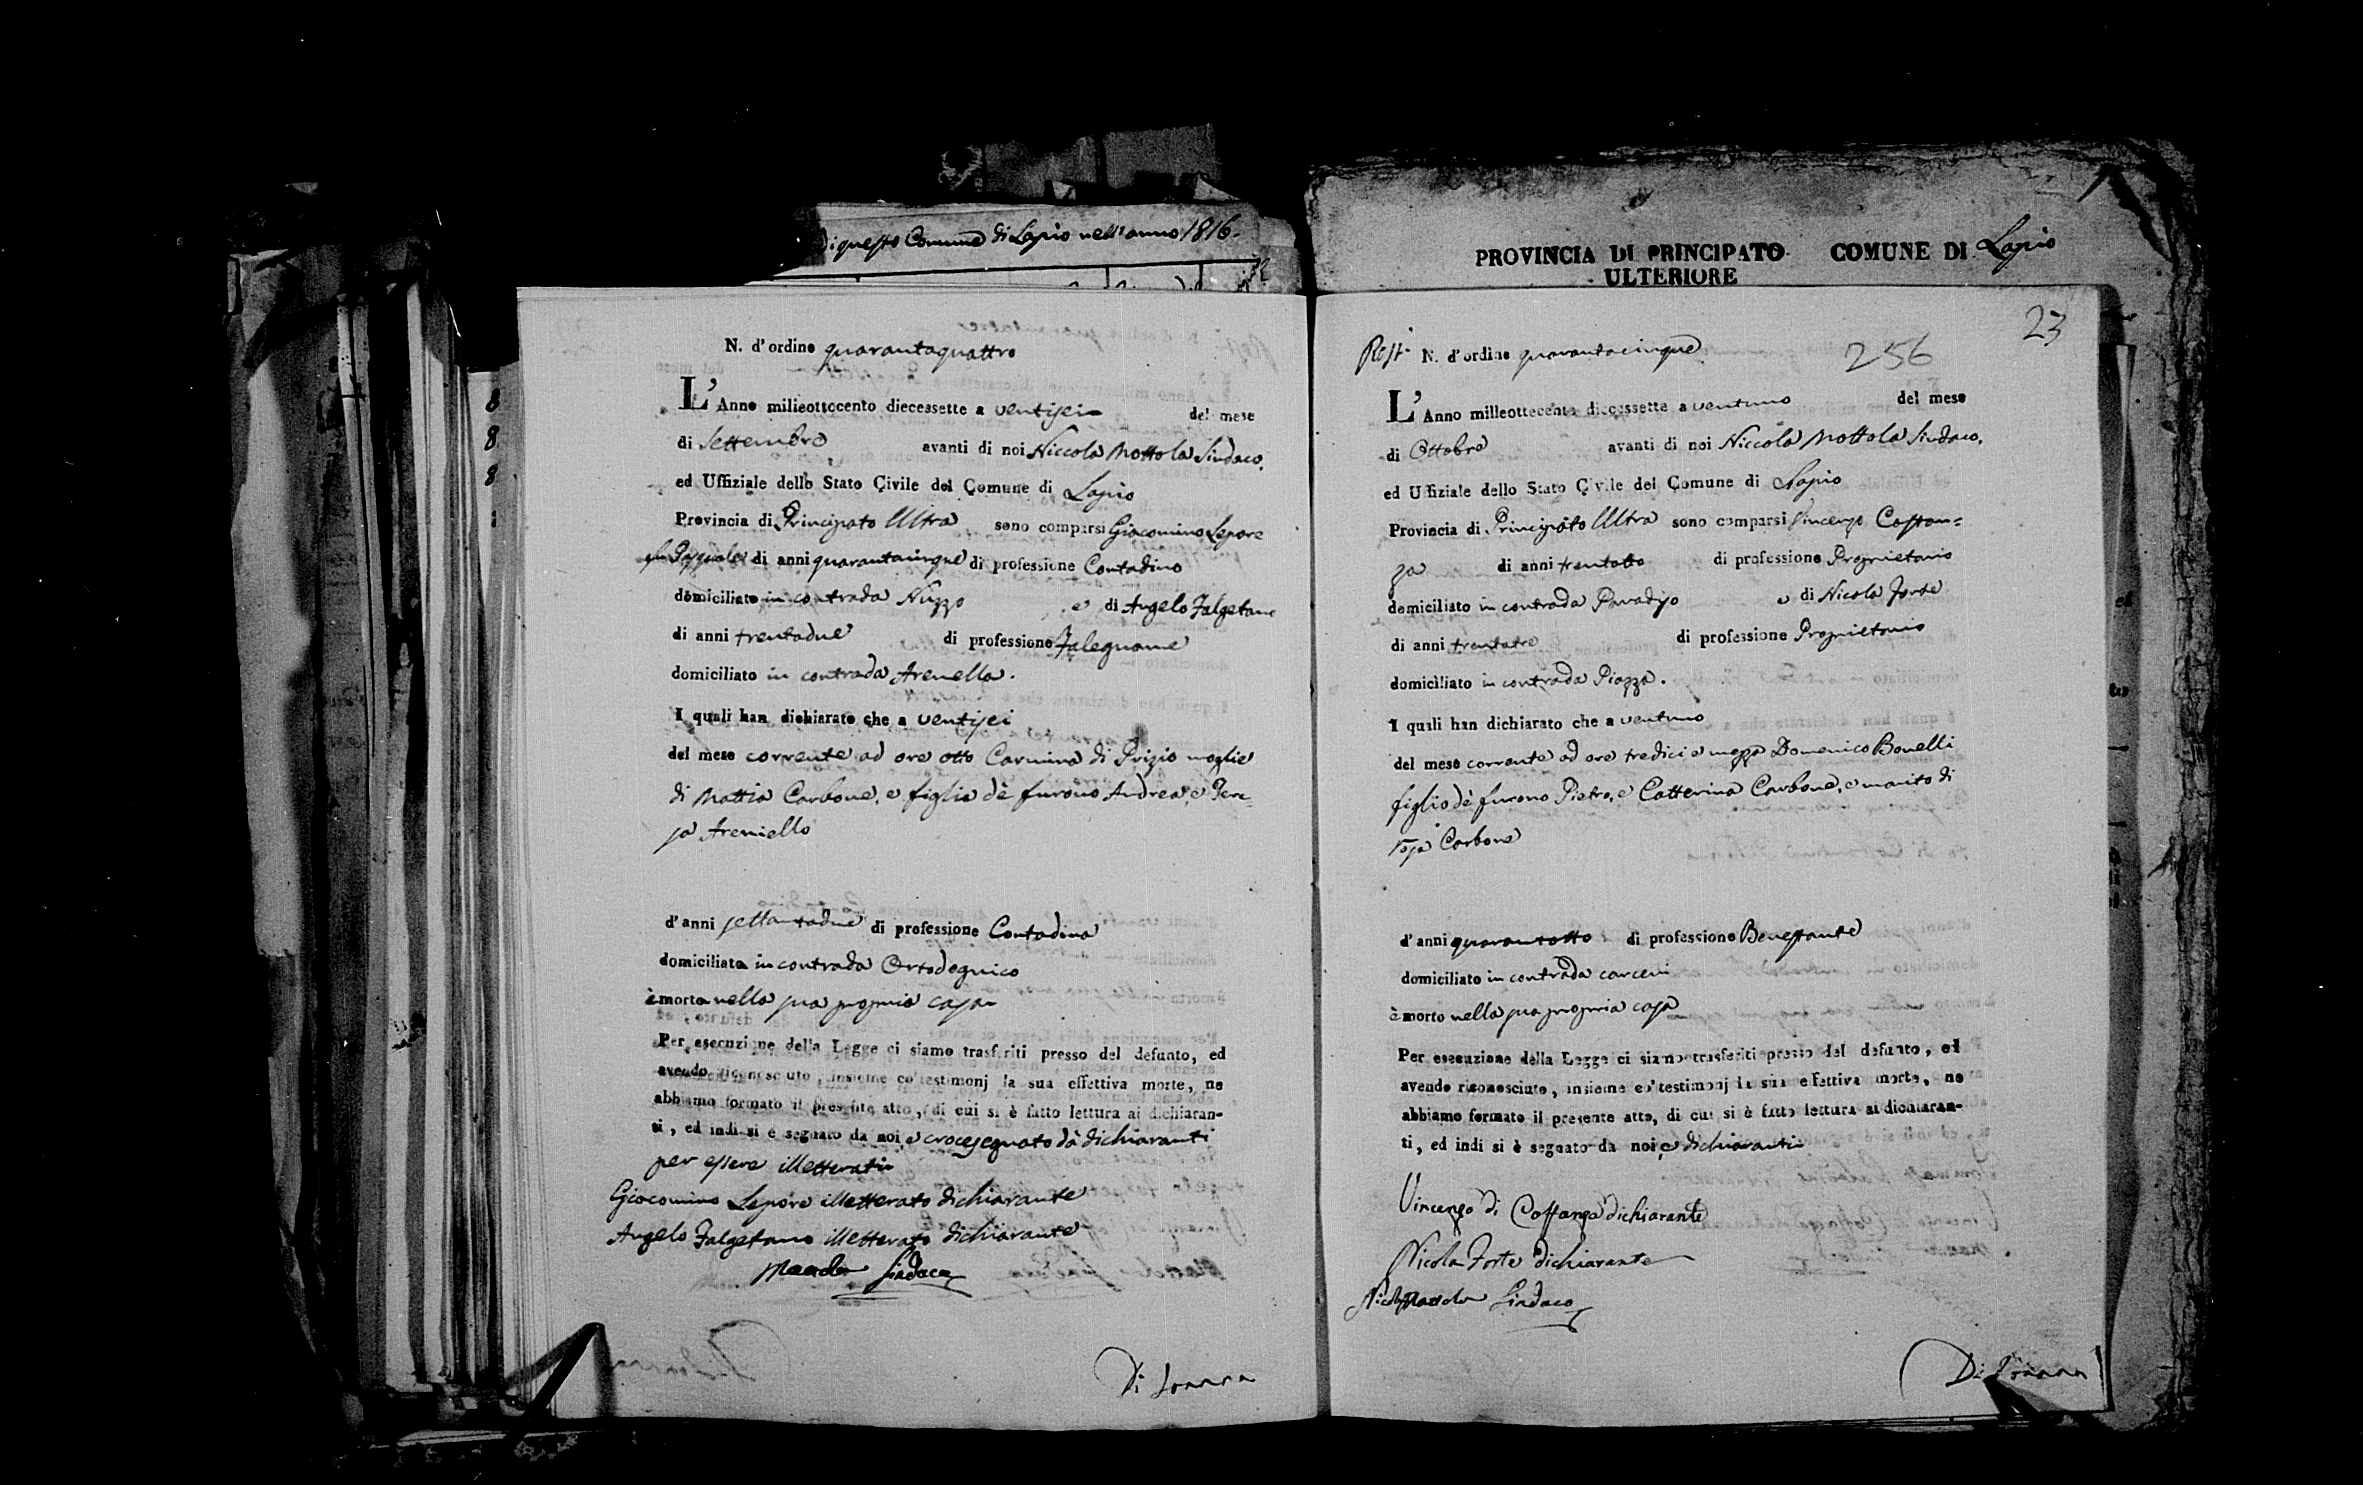 di questo Comune di Lapio nell'anno 1816.
PROVINCIA DI PRINCIPATO COMUNE DI Lapio
ULTERIORE
8
8
8
N. d'ordine quarantaquattro
L'Anno milleottocento diecessette a ventisei del mese
di Settembre avanti di noi Niccola Mottola Sindaco,
ed Uffiziale dello Stato Civile del Comune di Lapio
Provincia di Principato Ultra sono comparsi Giacomino Lepore
fu Pasquale di anni quarantacinque di professione Contadino
domiciliato in contrada Nuzzo e di Angelo Falgetano
di anni trentadue di professione Falegname
domiciliato in contrada Arenella.
I quali han dichiarato che a ventisei
del mese corrente ad ore otto Carmina di Prizio moglie
di Mattia Carbone, e figlia dè furono Andrea, e Tere=
sa Areniello
d'anni settantadue di professione Contadina
domiciliata in contrada Ortodognico
è morta nella sua propria casa
Per esecuzione della Legge ci siamo trasferiti presso del defunto, ed
avendo riconosciuto, insieme co' testimonj la sua effettiva morte, ne
abbiamo formato il presente atto, di cui si è fatto lettura ai dichiaran-
ti, ed indi si è segnato da noi, e crocesegnato dà dichiaranti
per essere illetterati
Giacomino Lepore illetterato dichiarante
Angelo Falgetano illetterato dichiarante
Sindaco
Di
23
N. d'ordine quarantacinque
256
L'Anno milleottocento diecessette a ventuno del mese
di Ottobre avanti di noi Niccola Mottola Sindaco,
ed Uffiziale dello Stato Civile del Comune di Lapio
Provincia di Principato Ultra sono comparsi Vincenzo Costan=
za di anni trentotto di professione Proprietario
domiciliato in contrada Paradiso e di Nicola Forte
di anni trentatre di professione Proprietario
domiciliato in contrada Piazza.
I quali han dichiarato che a ventuno
del mese corrante ad ore tredici e mezza Domenico Bonelli
figlio dè furono Pietro, e Catterina Carbone, e marito di
Rosa Carbone
d'anni quarantotto di professione Benestante
domiciliato in contrada carceri
è morto nella sua propria casa
Per esecuzione della Legge ci siamo trasferiti presso del defunto, ed
avendo riconosciuto, insieme co' testimonj la sua effettiva morte, ne
abbiamo formato il presente atto, di cui si è fatto lettura ai dichiaran-
ti, ed indi si è segnato da noi, e dichiaranti
Vincenzo di Costanza dichiarante
Nicola Forte dichiarante
Sindaco
Di